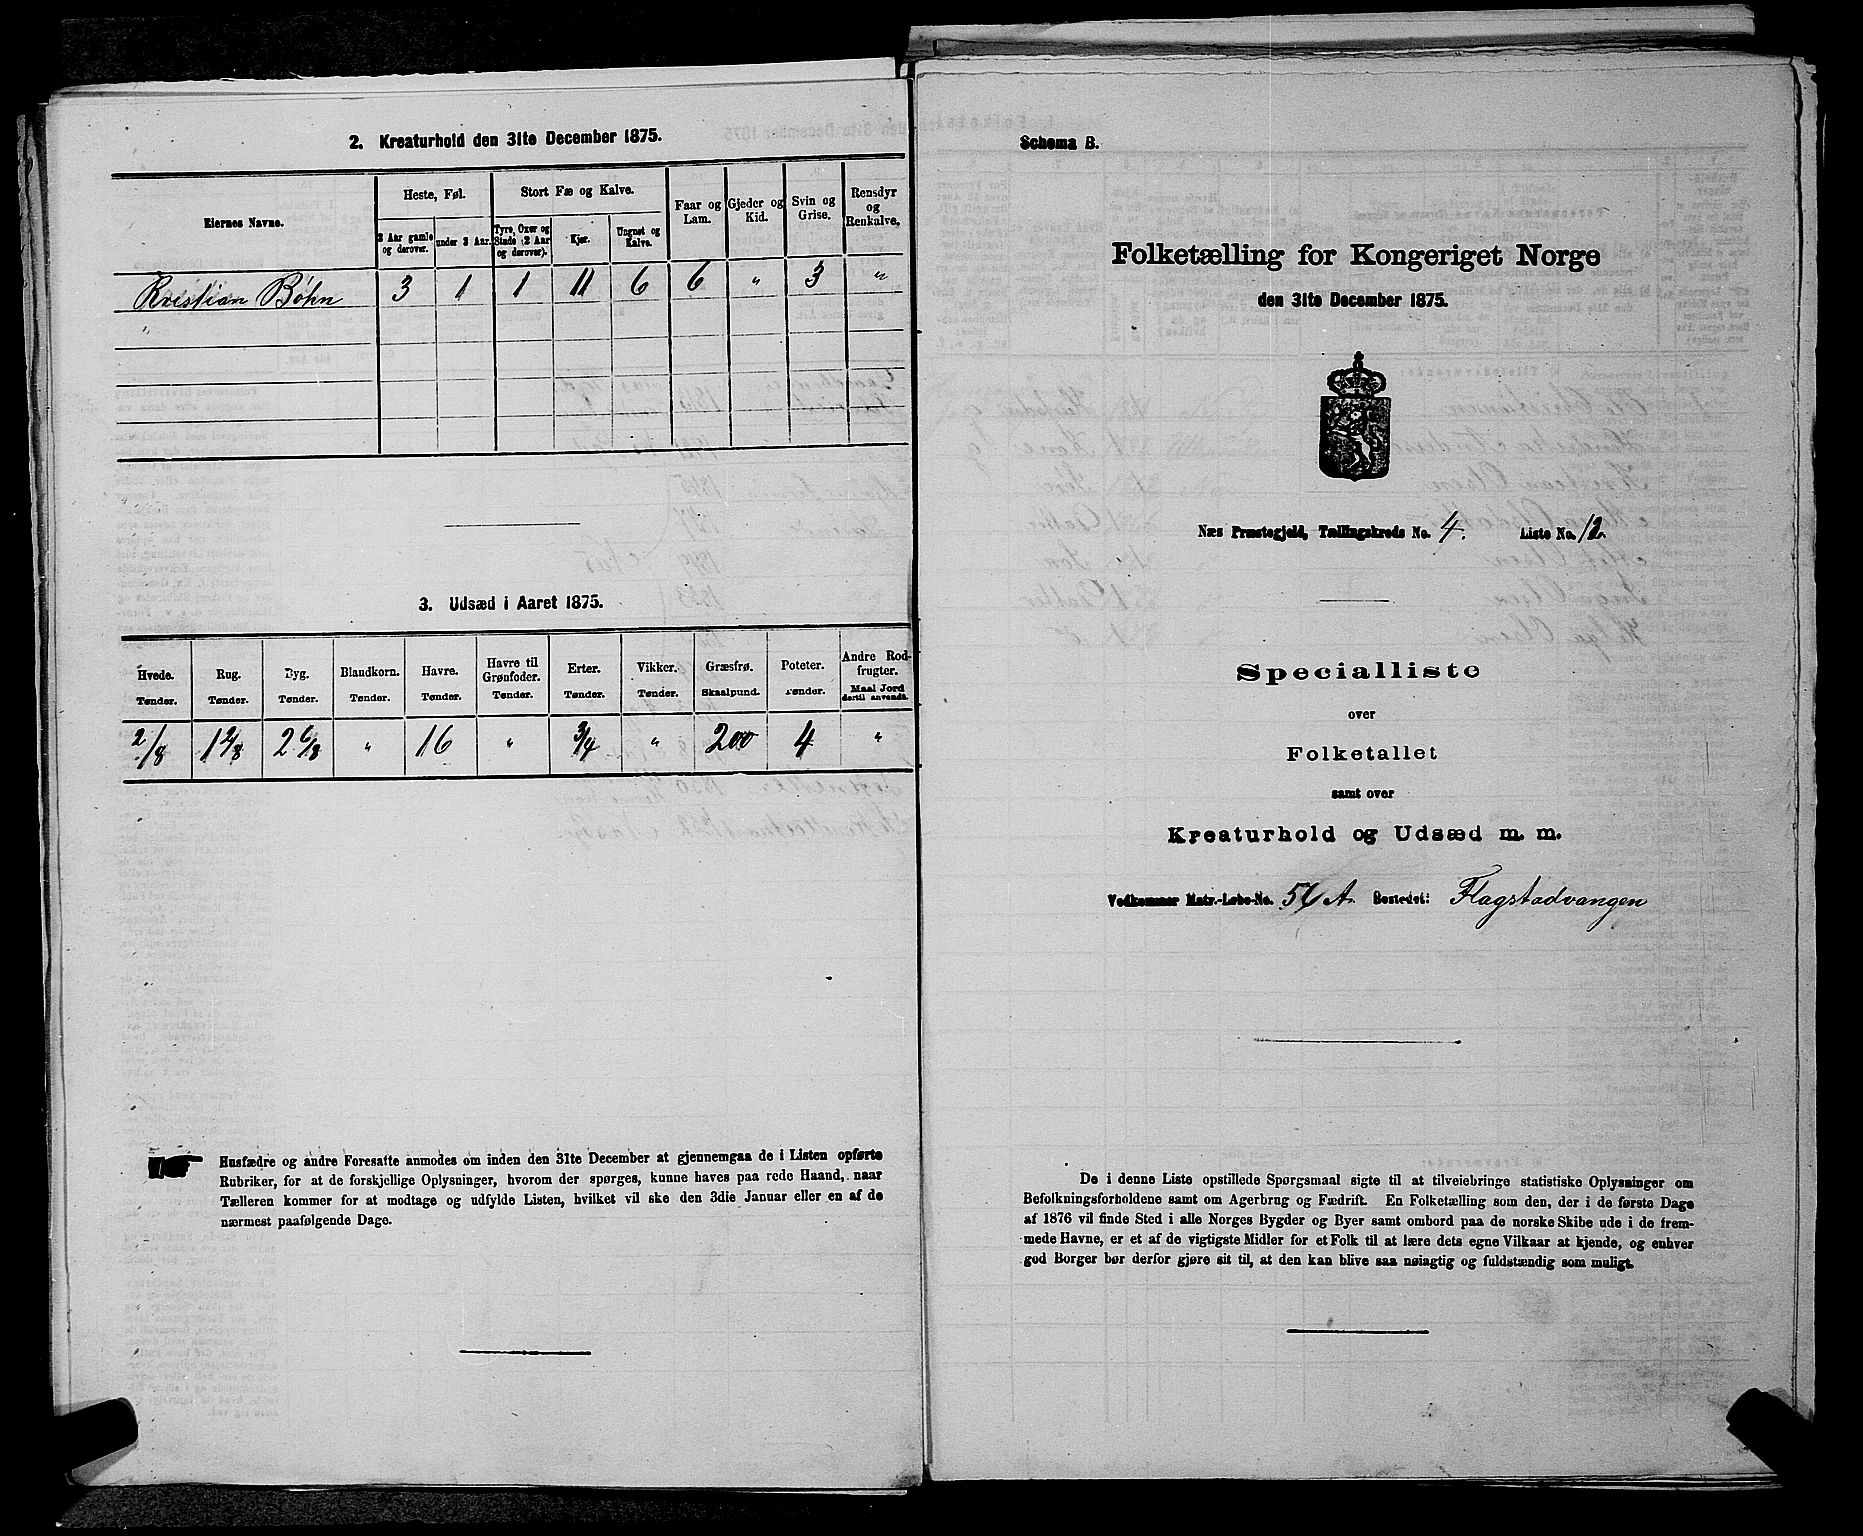 2. Kreaturhold den 31te December 1875.
Eiernes Navne.
Heste, Føl.
Stort Fæ og Kalve.
Faar og Lam.
Gjeder og Kid.
Svin og Grise.
Rensdyr og Renkalve.
3 Aar gamle og derover.
under 3 Aar.
Tyre, Oxer og Stude (2 Aar og derover).
Kjør.
Ungnøt og Kalve.
Kristian Bøhn 3 1 1 11 6 6 " 3 "
"
3. Udsæd i Aaret 1875.
Hvede. Rug. Byg. Blandkorn. Havre. Havre til Grønfoder. Erter. Vikker. Græsfrø. Poteter. Andre Rodfrugter.
Tønder. Tønder. Tønder. Tønder. Tønder. Tønder. Tønder. Tønder. Skaalpund. Tønder. Maal Jord dertil anvendt.
2/8 1 2/8 2 6/8 " 16 " 3/4 " 200 4 "
Husfædre og andre Foresatte anmodes om inden den 31te December at gjennemgaa de i Listen opførte
Rubriker, for at de forskjellige Oplysninger, hvorom der spørges, kunne haves paa rede Haand, naar
Tælleren kommer for at modtage og udfylde Listen, hvilket vil ske den 3die Januar eller en af de
nærmest paafølgende Dage.
Schema B.
Folketælling for Kongeriget Norge
den 31te December 1875.
Næs Præstegjeld, Tællingskreds No. 4. Liste No. 12.
Specialliste
over
Folketallet
samt over
Kreaturhold og Udsæd m. m.
Vedkommer Matr.-Løbe-No. 56 A. Bostedet: Flagstadvangen
De i denne Liste opstillede Spørgsmaal sigte til at tilveiebringe statistiske Oplysninger om
Befolkningsforholdene samt om Agerbrug og Fædrift. En Folketælling som den, der i de første Dage
af 1876 vil finde Sted i alle Norges Bygder og Byer samt ombord paa de norske Skibe ude i de frem-
mede Havne, er et af de vigtigste Midler for et Folk til at lære dets egne Vilkaar at kjende, og enhver
god Borger bør derfor gjøre sit til, at den kan blive saa nøiagtig og fuldstændig som muligt.